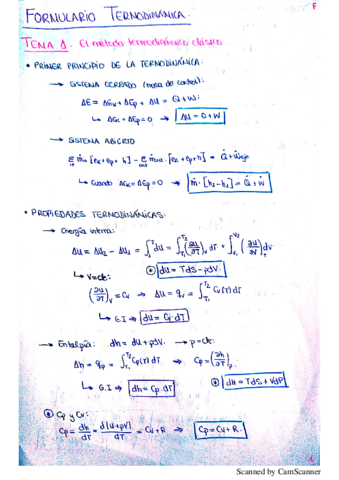 F
FORMULARIO TERMODINÁMICA.
TEMA 1. El método termodinámico clásico.
• PRIMER PRINCIPIO DE LA TERMODINÁMICA:
→ SISTEMA CERRADO (masa de control):
ΔE = ΔEk + ΔEp + ΔU = Q + W;
↳ ΔEc = ΔEp = 0 → ΔU = Q + W
→ SISTEMA ABIERTO
Σ ṁin [ek + ep + h] - Σ ṁout [ek + ep + h] = Q̇ + Ẇeje
↳ Cuando ΔEc = ΔEp = 0 → ṁ · [h2 - h1] = Q̇ + Ẇ
• PROPIEDADES TERMODINÁMICAS:
→ Energía interna:
ΔU = U2 - U1 = ∫₁² dU = ∫_T1^T2 (∂U/∂T)_V dT + ∫_V1^V2 (∂U/∂V)_T dV
↳ V = cte: dU = TdS - pdV.
(∂U/∂T)_V = Cv ⇒ ΔU = qv = ∫_T1^T2 Cv(T) dT
↳ G.I ⇒ dU = Cv · dT
→ Entalpía: dh = dU + pdV. → p = cte:
Δh = qp = ∫_T1^T2 Cp(T) dT ⇒ Cp = (∂h/∂T)_p
↳ G.I ⇒ dh = Cp · dT dH = TdS + VdP
Cp y Cv:
Cp = dh/dT = d(U + pV)/dT = Cv + R ⇒ Cp = Cv + R.
1
Scanned by CamScanner